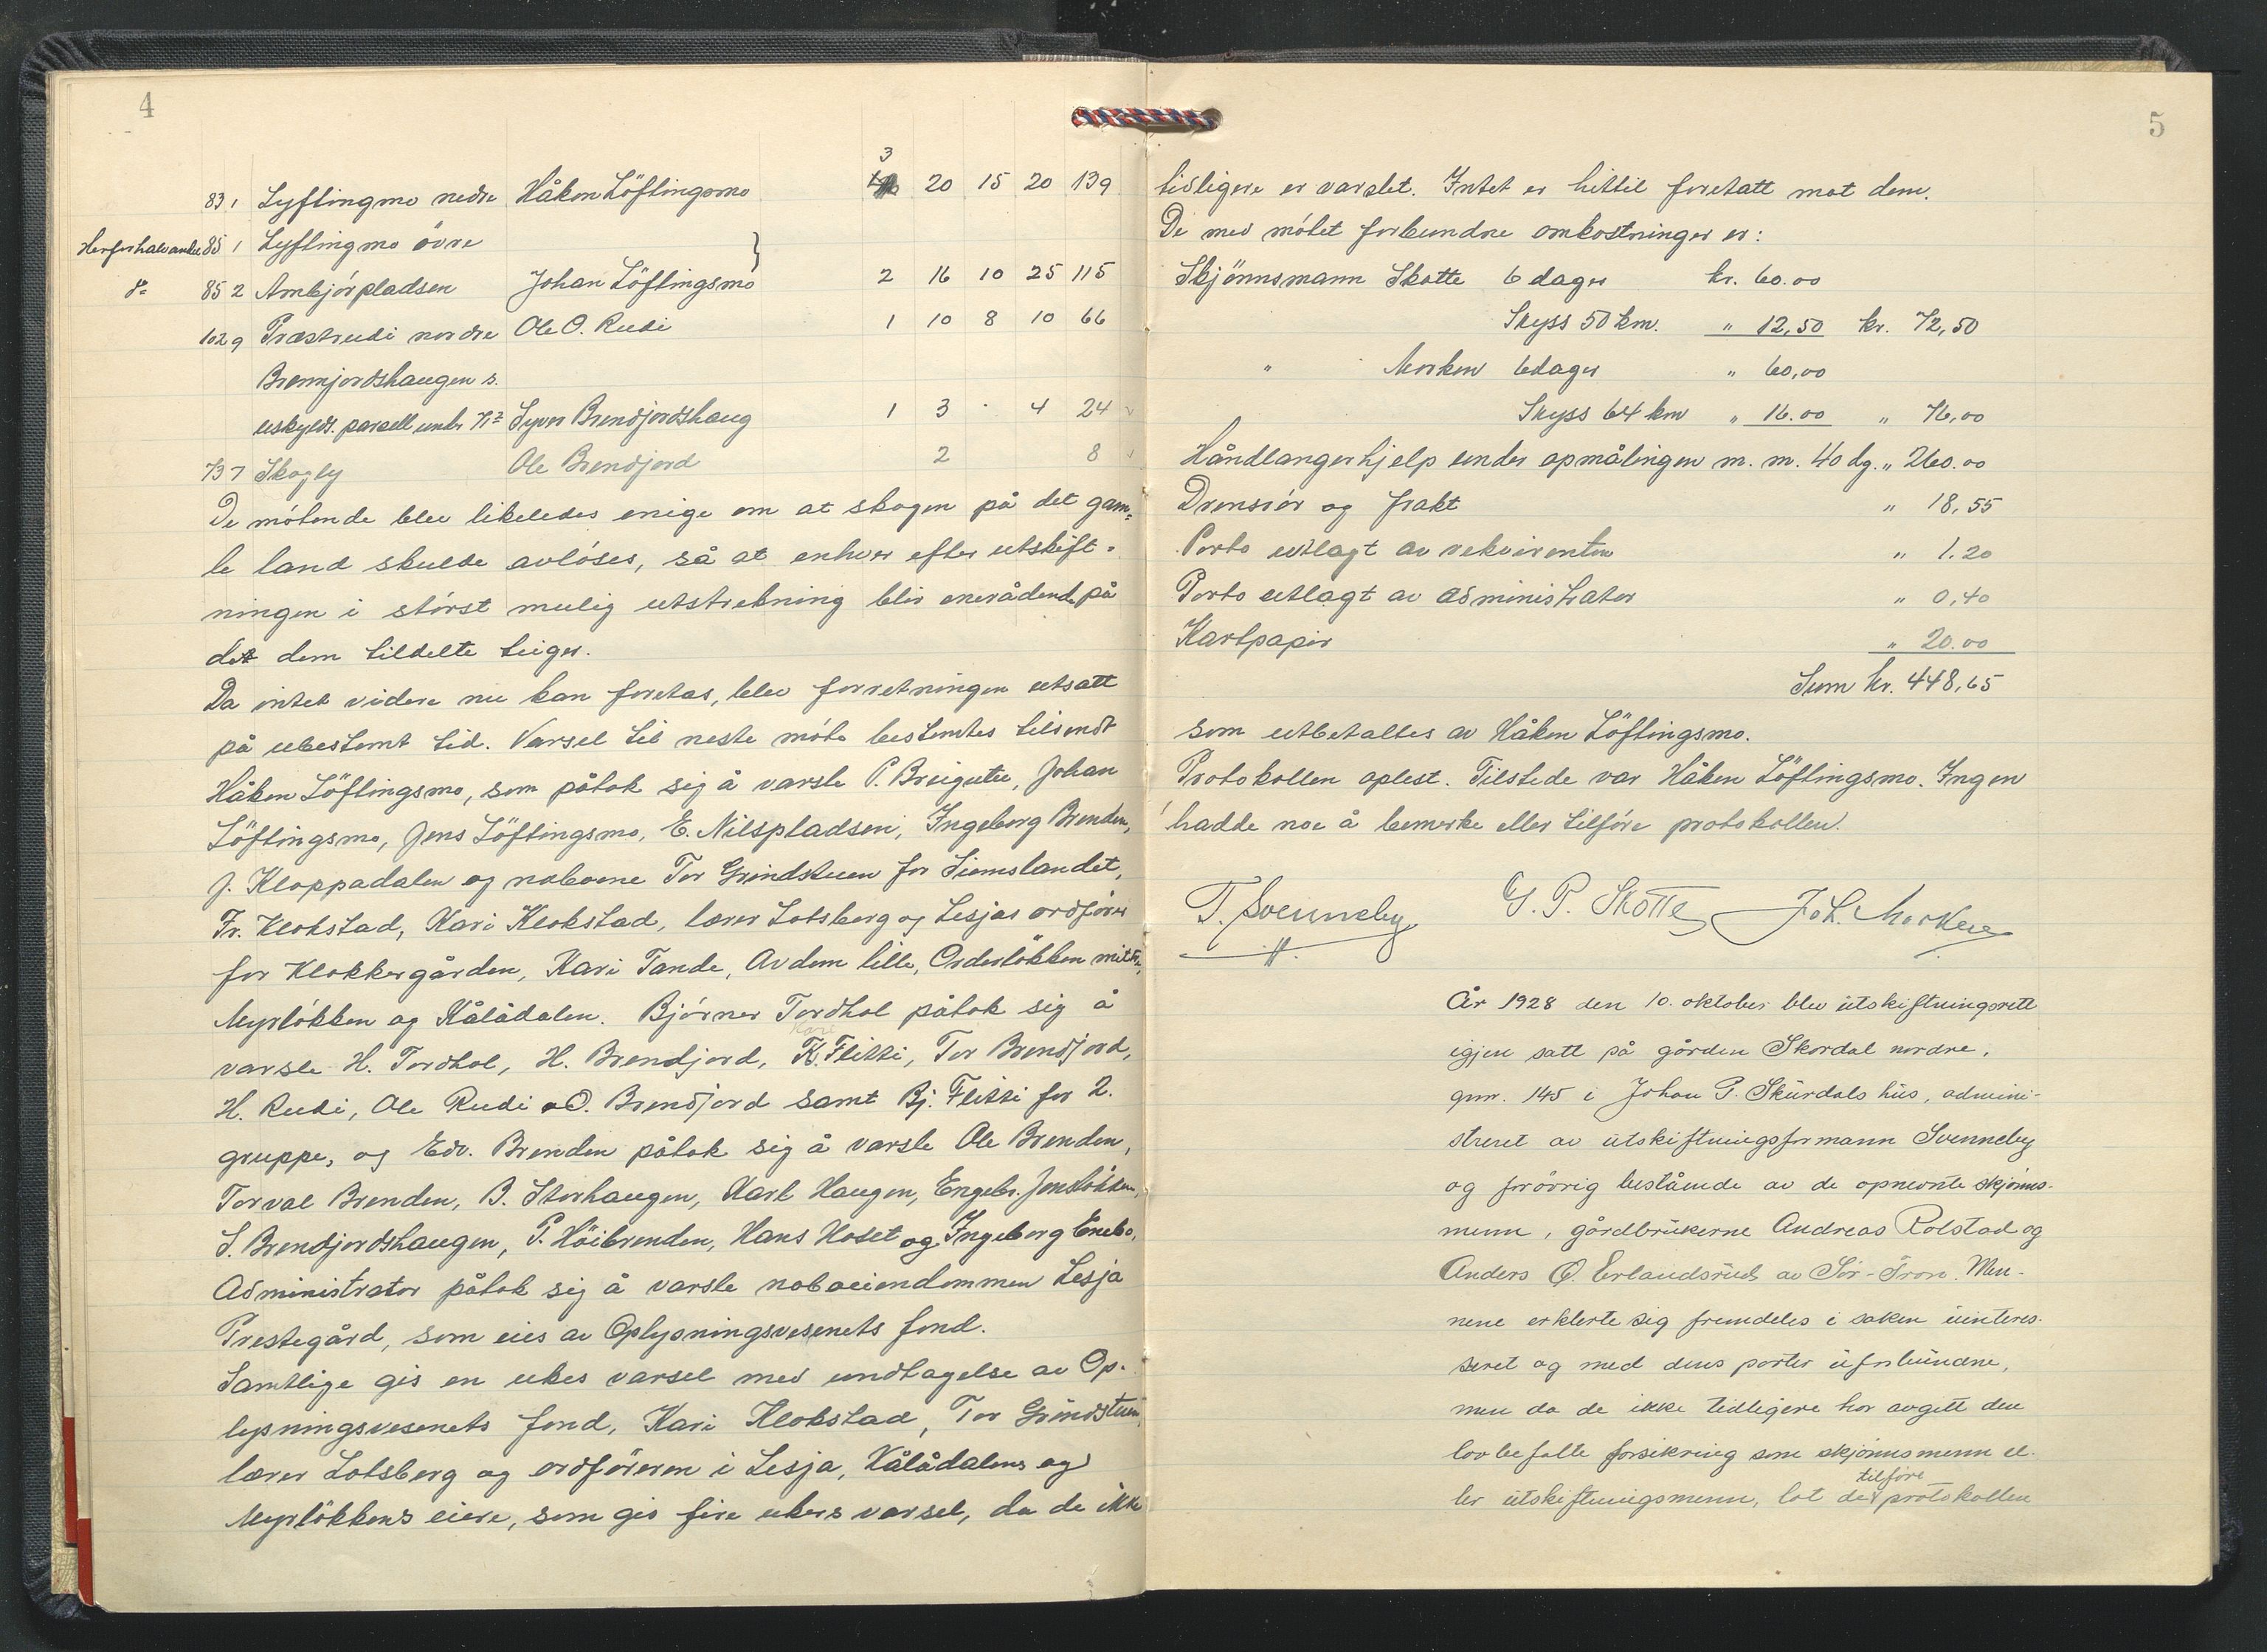 4
83 1 Lyftingmo nedre Håkon Löftingsmo 3 20 15 20 139
Herfor halvandre 85 1 Lyftingmo övre
do 85 2 Arnbjørpladsen Johan Löftingsmo } 2 16 10 25 115
102 9 Præstrudi nordre Ole O. Rudi 1 10 8 10 66
Brennjordshaugen s.
uskyldt. parsell under 71² Syver Brendjordshaug 1 3 · 4 24
73 7 Skogly Ole Brendjord 2 8
De møtende blev likeledes enige om at skogen på det gam=
le land skulde avløses, så at enhver efter utskift=
ningen i størst mulig utstrekning blir enerådende på
de dem tildelte teiger.
Da intet videre nu kan foretas, blev forretningen utsatt
på ubestemt tid. Varsel til neste møte bestemtes tilsendt
Håkon Löftingsmo, som påtok sig å varsle P. Breigutu, Johan
Löftingsmo, Jens Löftingsmo, E. Nilspladsen, Ingeborg Brenden,
J. Kloppadalen og naboene Tor Grindstuen for Siemslandet,
Fr. Klokstad, Kari Klokstad, lærer Lotsberg og Lesjas ordfører
for Klokkergården, Kari Tande, Avdem lille, Orderløkken mitre,
Myrløkken og Kålådalen. Bjørner Tordhol påtok sig å
varsle H. Tordhol, H. Brendjord, Kari K. Flitti, Tor Brendjord,
H. Rudi, Ole Rudi o O. Brendjord samt Bj. Flitti for 2.
gruppe, og Edv. Brenden påtok sig å varsle Ole Brenden,
Torval Brenden, B. Storhaugen, Karl Haugen, Engebr. Jensløkken,
S. Brendjordshaugen, P. Höibrenden, Hans Hoset og Ingeborg Enebo,
Administrator påtok sig å varsle naboeiendommen Lesja
Prestegård, som eies av Oplysningsvesenets fond.
Samtlige gis en ukes varsel med undtagelse av Op-
lysningsvesenets fond, Kari Klokstad, Tor Grindstuen,
lærer Lotsberg og ordføreren i Lesja, Kålådalens og
Myrløkkens eiere, som gis fire ukers varsel, da de ikke
5
tidligere er varslet. Intet er hittil foretatt mot dem.
De med møtet forbundne omkostninger er:
Skjønnsmann Skotte 6 dager kr. 60.00
Skyss 50 km. " 12,50 kr. 72,50
" Morken 6 dager " 60,00
Skyss 64 km " 16.00 " 76,00
Håndlangerhjelp under opmålingen m. m. 40 dg. " 260.00
Drensrör og frakt " 18,55
Porto utlagt av rekvirenten " 1.20
Porto utlagt av administrator " 0,40
Kartpapir " 20.00
Sum kr. 448,65
som utbetaltes av Håkon Löftingsmo.
Protokollen oplest. Tilstede var Håken Löftingsmo. Ingen
hadde noe å bemerke eller tilføre protokollen.
T. Svenneby G. P. Skotte Joh. Morken
År 1928 den 10. oktober blev utskiftningsrett
igjen satt på gården Skordal nordre,
gnr. 145 i Johan P. Skurdals hus, admini-
streret av utskiftningsformann Svenneby
og forövrig bestående av de opnevnte skjønns-
menn, gårdbrukerne Andreas Rolstad og
Anders O. Erlandsrud av Sør-Fron. Men-
nene erklerte sig fremdeles i saken uinteres-
seret og med dens parter uforbundne,
men da de ikke tidligere har avgitt den
lovbefalte forsikring som skjønnsmenn el-
ler utskiftningsmenn, lot de tilføre protokollen